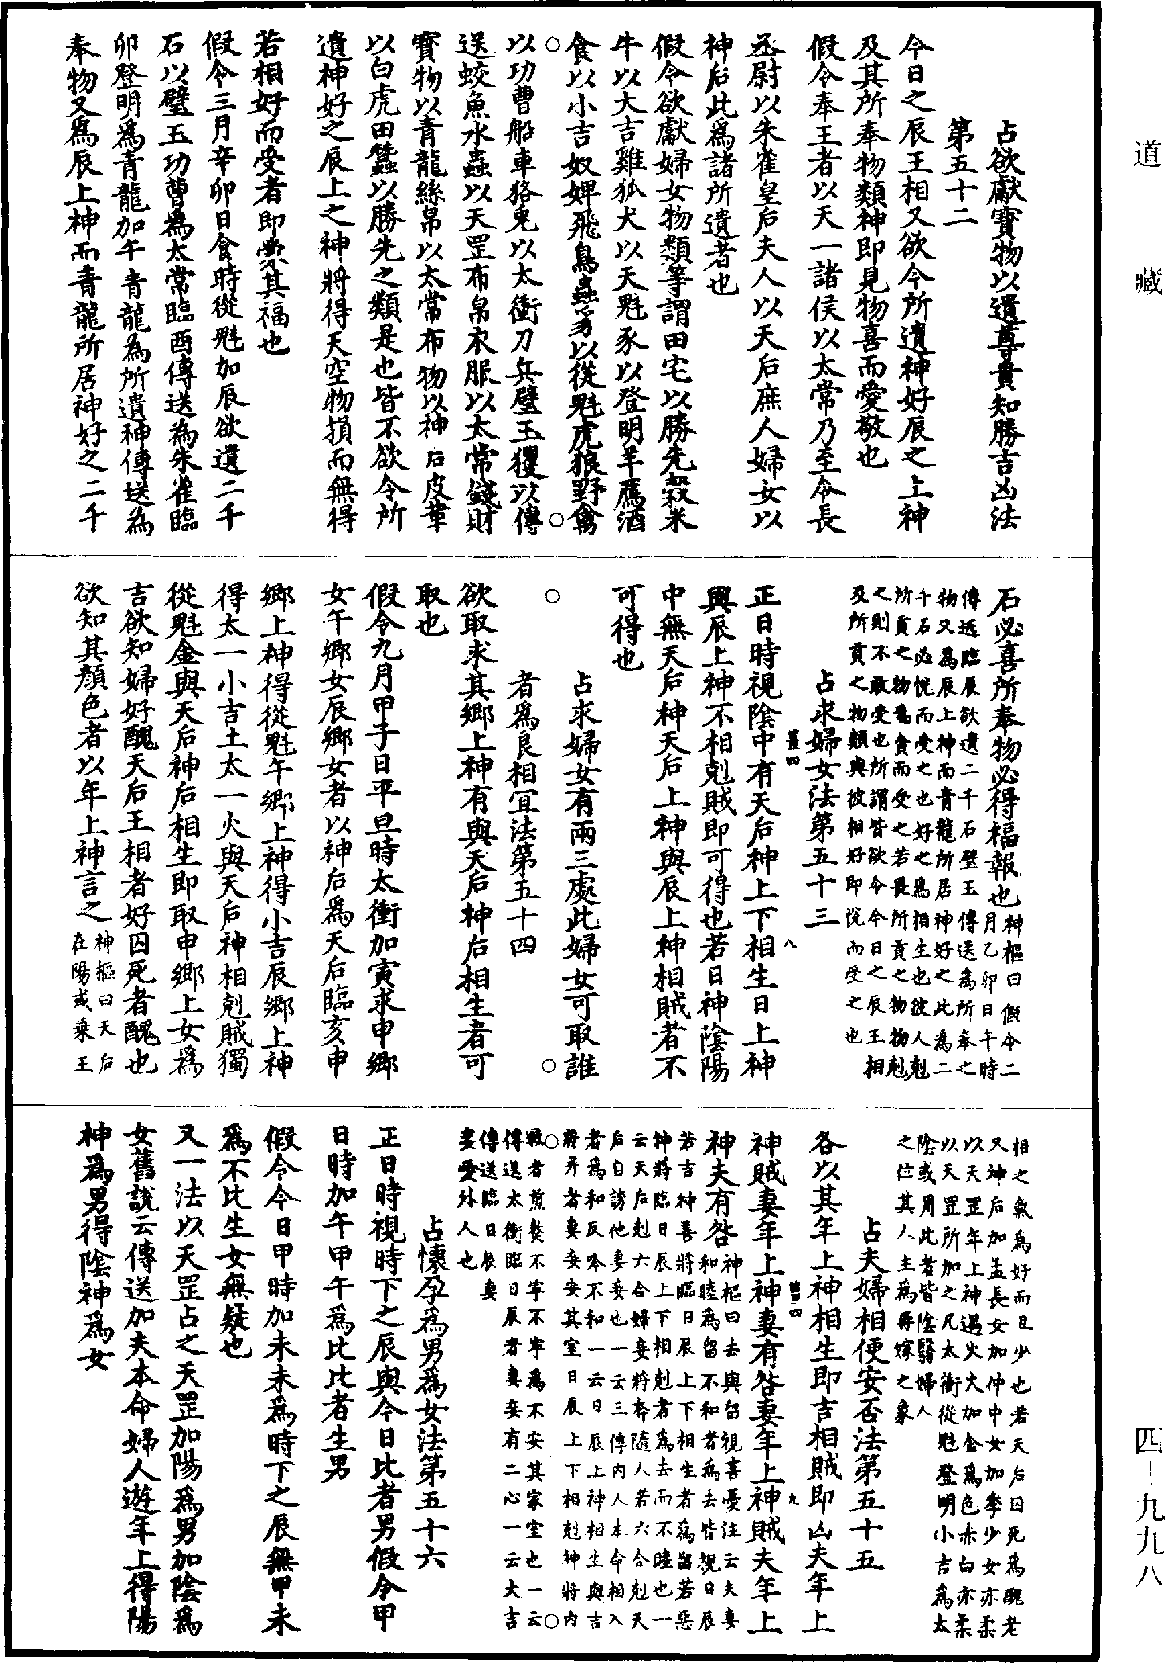 道藏
占欲獻寶物以遺尊貴知勝吉凶法
第五十二
今日之辰王相又欲令所遺神好辰之上神
及其所奉物類神即見物喜而愛敬也
假令奉王者以天一諸侯以太常乃至令長
丞尉以朱雀皇后夫人以天后庶人婦女以
神后此為諸所遺者也
假令欲獻婦女物類等謂田宅以勝先穀米
牛以大吉雞狐犬以天魁豕以登明羊鴈酒
食以小吉奴婢飛鳥蟲豸以從魁虎狼野禽
以功曹船車狢兔以太衝刀兵璧玉玃以傳
送蛟魚水蟲以天罡布帛衣服以太常錢財
寶物以青龍絲帛以太常布物以神后皮革
以白虎田蠶以勝先之類是也皆不欲令所
遺神好之辰上之神將得天空物損而無得
若相好而受者即蒙其福也
假令三月辛卯日食時從魁加辰欲遺二千
石以璧玉功曹為太常臨酉傳送為朱雀臨
卯登明為青龍加午青龍為所遺神傳送為
奉物又為辰上神而青龍所居神好之二千
石必喜所奉物必得福報也神樞曰假令二
月乙卯日午時
傳送臨辰欲遺二千石璧玉傳送為所奉之
物又為辰上神而青龍所居神好之此為二
千石必悅而受之也好之為相生也彼人剋
所貢之物為貪而受之若畏所貢之物物剋
之則不敢受也所謂皆欲令今日之辰王相
及所貢之物類與彼相好即悅而受之也
占求婦女法第五十三
正日時視陰中有天后神上下相生日上神
與辰上神不相剋賊即可得也若日神陰陽
中無天后神天后上神與辰上神相賊者不
可得也
占求婦女有兩三處此婦女可取誰
者為良相宜法第五十四
欲取求其鄉上神有與天后神后相生者可
取也
假令九月甲子日平旦時太衝加寅求申鄉
女午鄉女辰鄉女者以神后為天后臨亥申
鄉上神得從魁午鄉上神得小吉辰鄉上神
得太一小吉土太一火與天后神相剋賊獨
從魁金與天后神后相生即取申鄉上女為
吉欲知婦好醜天后王相者好囚死者醜也
欲知其顏色者以年上神言之神樞曰天后
在陽或乘王
相之氣為好而且少也若天后囚死為醜老
又神后加孟長女加仲中女加季少女亦柔
以天罡年上神遇火火加金為色赤白亦柔
以天罡所加之凡太衝從魁登明小吉為太
陰或用此者皆陰醫婦人
之位其人主為尋嫁之象
占夫婦相便安否法第五十五
各以其年上神相生即吉相賊即凶夫年上
神賊妻年上神妻有咎妻年上神賊夫年上
神夫有咎神樞曰去與留視喜憂注云夫妻
和睦為留不和者為去皆視日辰
若吉神善將臨日辰上下相生者為留若惡
神將臨日辰上下相剋者為去而不睦也一
云天后剋六合婦妾將奔隨人若六合剋天
后自誘他妻妾也一云三傳內人本命相入
者為和反吟不和一云日辰上神相生與吉
將并者妻妾安其室日辰上下相剋神將內
戰者煎熬不寧不寧為不安其家室也一云
傳送太衝臨日辰者妻妾有二心一云大吉
傳送臨日辰妻
妾愛外人也
占懷孕為男為女法第五十六
正日時視時下之辰與今日比者男假令甲
日時加午甲午為比比者生男
假令今日甲時加未未為時下之辰無甲未
為不比生女無疑也
又一法以天罡占之天罡加陽為男加陰為
女舊說云傳送加夫本命婦人遊年上得陽
神為男得陰神為女
四-九九八